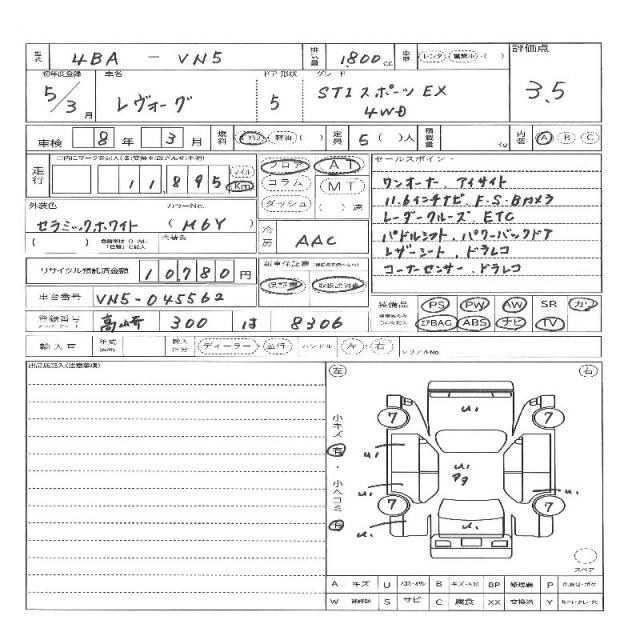 型式 4BA - VN5 排気量 1800 cc 車歴 (レンタ)・(営業中)・( ) 評価点
初年度登録 車名 ドア形状 グレード
5/3月 レヴォーグ 5 STIスポーツEX 4WD 3.5
車検 8年 3月 燃料 (ガソリン) (軽油) ( ) 定員 5( )人 積載量 内装 A B C
走行 11,895 マイル Km
フロア コラム ダッシュ AT MT ( )速
外装色 カラーNo.
セラミックホワイト (M6Y)
冷房 AAC
リサイクル預託済金額 10780円
新車保証書
保証書 取扱説明書
車台番号 VN5-045562
登録番号 高崎 300 は 8306
セールスポイント
ワンオーナー、アイサイト
11.6インチナビ、F・S・Bカメラ
レーダークルーズ ETC
パドルシフト、パワーバックドア
レザーシート、ドラレコ
コーナーセンサー、ドラレコ
装備品 PS PW AW SR カワ
エアBAG ABS ナビ TV
輸入車 年式 輸入区分 (ディーラー)・(並行) ハンドル 左・右 シリアルNo.
出品店記入(注意事項)
左 右
小キズ 有・小ヘコミ 有
U1
7 7
U1
U1 U1 U1
99
7 7
U1 U1
スペア
A キズ U B BP P
W S サビ C 腐食 XX 交換済 Y